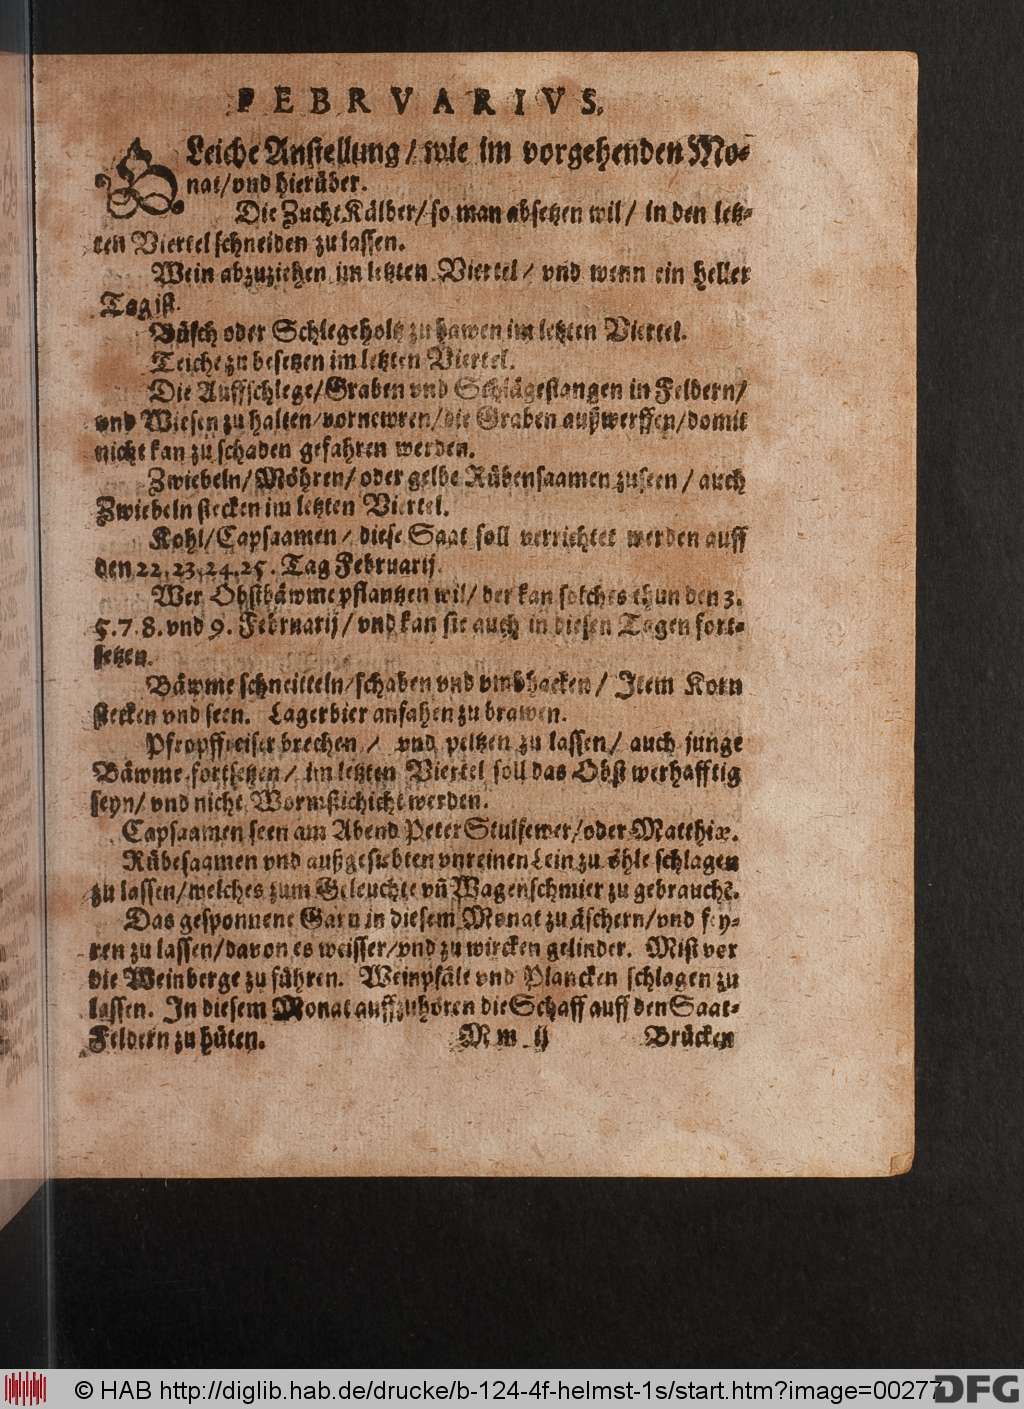 FEBRVARIVS.
GLeiche Anstellung / wie im vorgehenden Mo-
nat/vnd hierüber.
Die Zucht Kälber/ so man absetzen wil/ in den letz-
ten Viertel schneiden zu lassen.
Wein abzuziehen im letzten Viertel/ vnd wenn ein heller
Tag ist.
Büsch oder Schlegeholtz zu hawen im letzten Viertel.
Teiche zu besetzen im letzten Viertel.
Die Auffschlege/Graben vnd Schlägestangen in Feldern/
vnd Wiesen zu halten/vornewren/die Graben außwerffen/domit
nicht kan zu schaden gefahren werden.
Zwiebeln/Möhren/ oder gelbe Rübensaamen zuseen / auch
Zwiebeln stecken im letzten Viertel.
Kohl/Capsaamen/ diese Saat soll verrichtet werden auff
den 22.23.24.25. Tag Februarij.
Wer Obstbäwme pflantzen wil/ der kan solches thun den 3.
5.7.8. vnd 9. Februarij/ vnd kan sie auch in diesen Tagen fort-
setzen.
Bäwme schneitteln/schaben vnd vmbhacken/ Item Korn
stecken vnd seen. Lagerbier anfahen zu brawen.
Pfropffreiser brechen / vnd peltzen zu lassen/ auch junge
Bäwme fortsetzen/ im letzten Viertel soll das Obst werhafftig
seyn/ vnd nicht Wormstichicht werden.
Capsaamen seen am Abend Peter Stulfewer/oder Matthiæ.
Rübesaamen vnd außgesiebten vnreinen Lein zu öhle schlagen
zu lassen/welches zum Geleuchte vn̄ Wagenschmier zu gebrauchē.
Das gesponnene Garn in diesem Monat zu äschern/vnd sey-
ren zu lassen/davon es weisser/vnd zu wircken gelinder. Mist vor
die Weinberge zu führen. Weinpfäle vnd Plancken schlagen zu
lassen. In diesem Monat auffzuhören die Schaff auff den Saat-
Feldern zu hüten. M m ij Brücken
© HAB http://diglib.hab.de/drucke/b-124-4f-helmst-1s/start.htm?image=00277
DFG